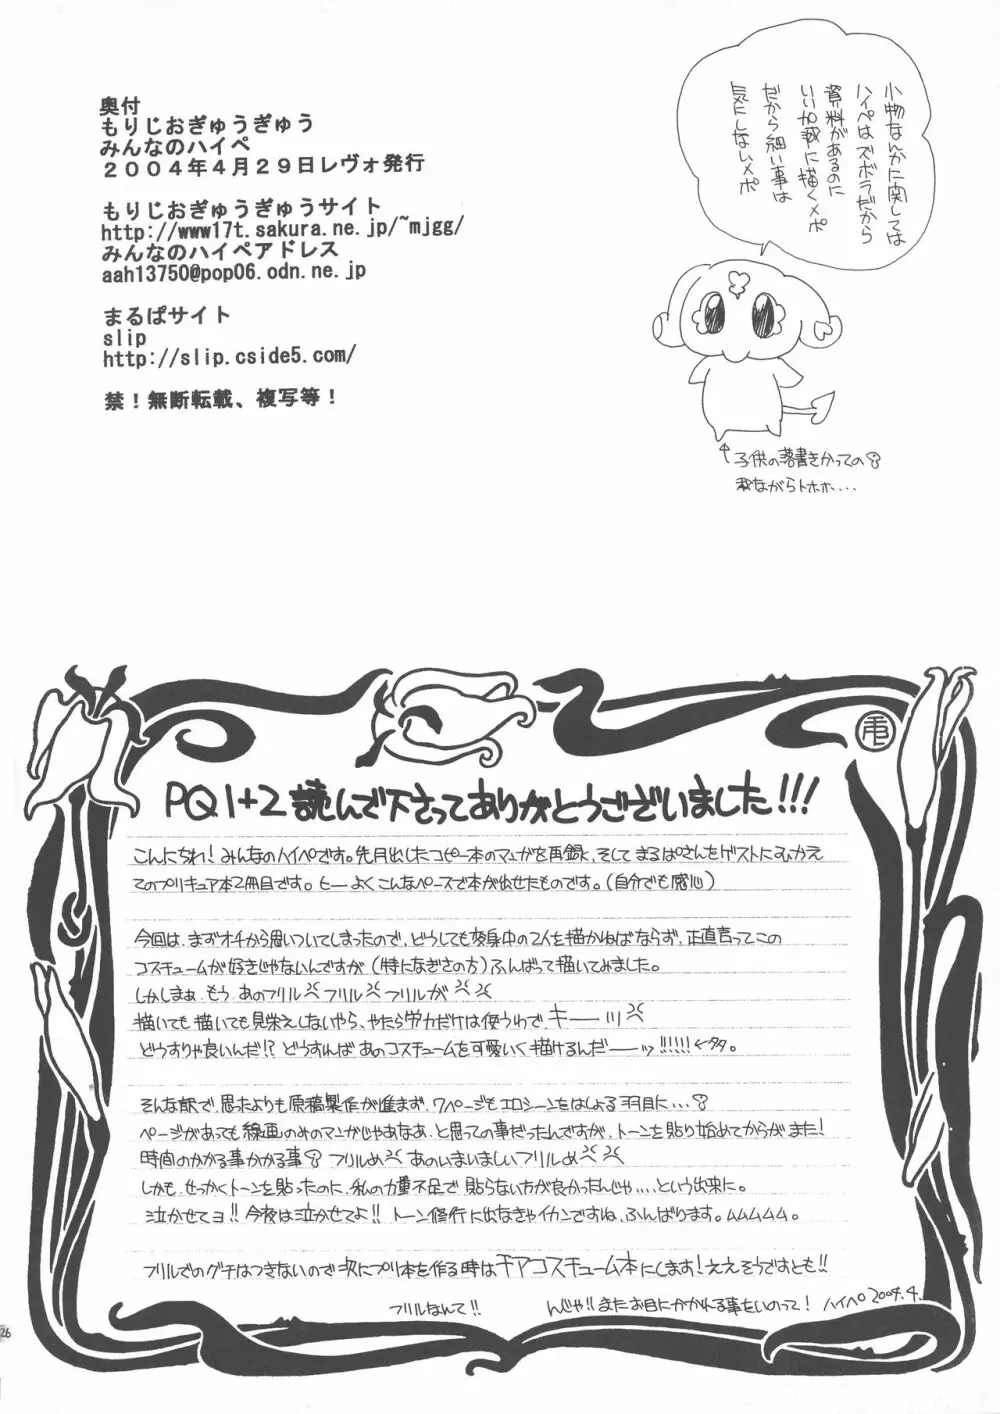 奥付
もりじおぎゅうぎゅう
みんなのハイペ
2004年4月29日レヴォ発行
もりじおぎゅうぎゅうサイト
http://www17t.sakura.ne.jp/~mjgg/
みんなのハイペアドレス
aah13750@pop06.odn.ne.jp
まるぱサイト
slip
http://slip.cside5.com/
禁！無断転載、複写等！
小物なんかに関しては
ハイペはズボラだから
資料があるのに
いい加減に描くメポ
だから細い事は
気にしないメポ
↑子供の落書きかっての
我ながらトホホ....
PQ1+2 読んで下さってありがとうございました!!!
こんにちわ！みんなのハイペです。先月出したコピー本のマンガを再録し、そして まるぱさんをゲストにむかえ
てのプリキュア本2冊目です。ヒー よくこんなペースで本が出せたものです。(自分でも感心)
今回は、まずオチから思いついてしまったので、どうしても変身中の2人を描かねばならず、正直言ってこの
コスチュームが好きじゃないんですが(特になぎさの方)ふんばって描いてみました。
しかしまぁ、もう、あのフリルフリルフリルが
描いても描いても見栄えしないやら、やたら労力だけは使うわで キーーッ
どうすりゃ良いんだ!? どうすれば あのコスチュームを可愛いく描けるんだーーッ!!!!!!
そんな訳で、思たよりも原稿製作が進まず、7ページもエロシーンをはしょる羽目に...
ページがあっても線画のみのマンガじゃあなあ、と思っての事だったんですが、トーンを貼り始めてからがまた!
時間のかかる事かかる事 フリルめ あのいまいましいフリルめ
しかも、せっかくトーンを貼ったのに、私の力量不足で 貼らない方が良かったんじゃ....という出来に。
泣かせてヨ!! 今夜は泣かせてよ!! トーン修行に出なきゃイカンですね、ふんばります。ムムムムム。
フリルでのグチはつきないので次にプリ本を作る時はギアコスチューム本にします！ええそうですとも!!
フリルなんて!!
んじゃ!! またお目にかかれる事をいのって！ ハイペ 2004.4.
26